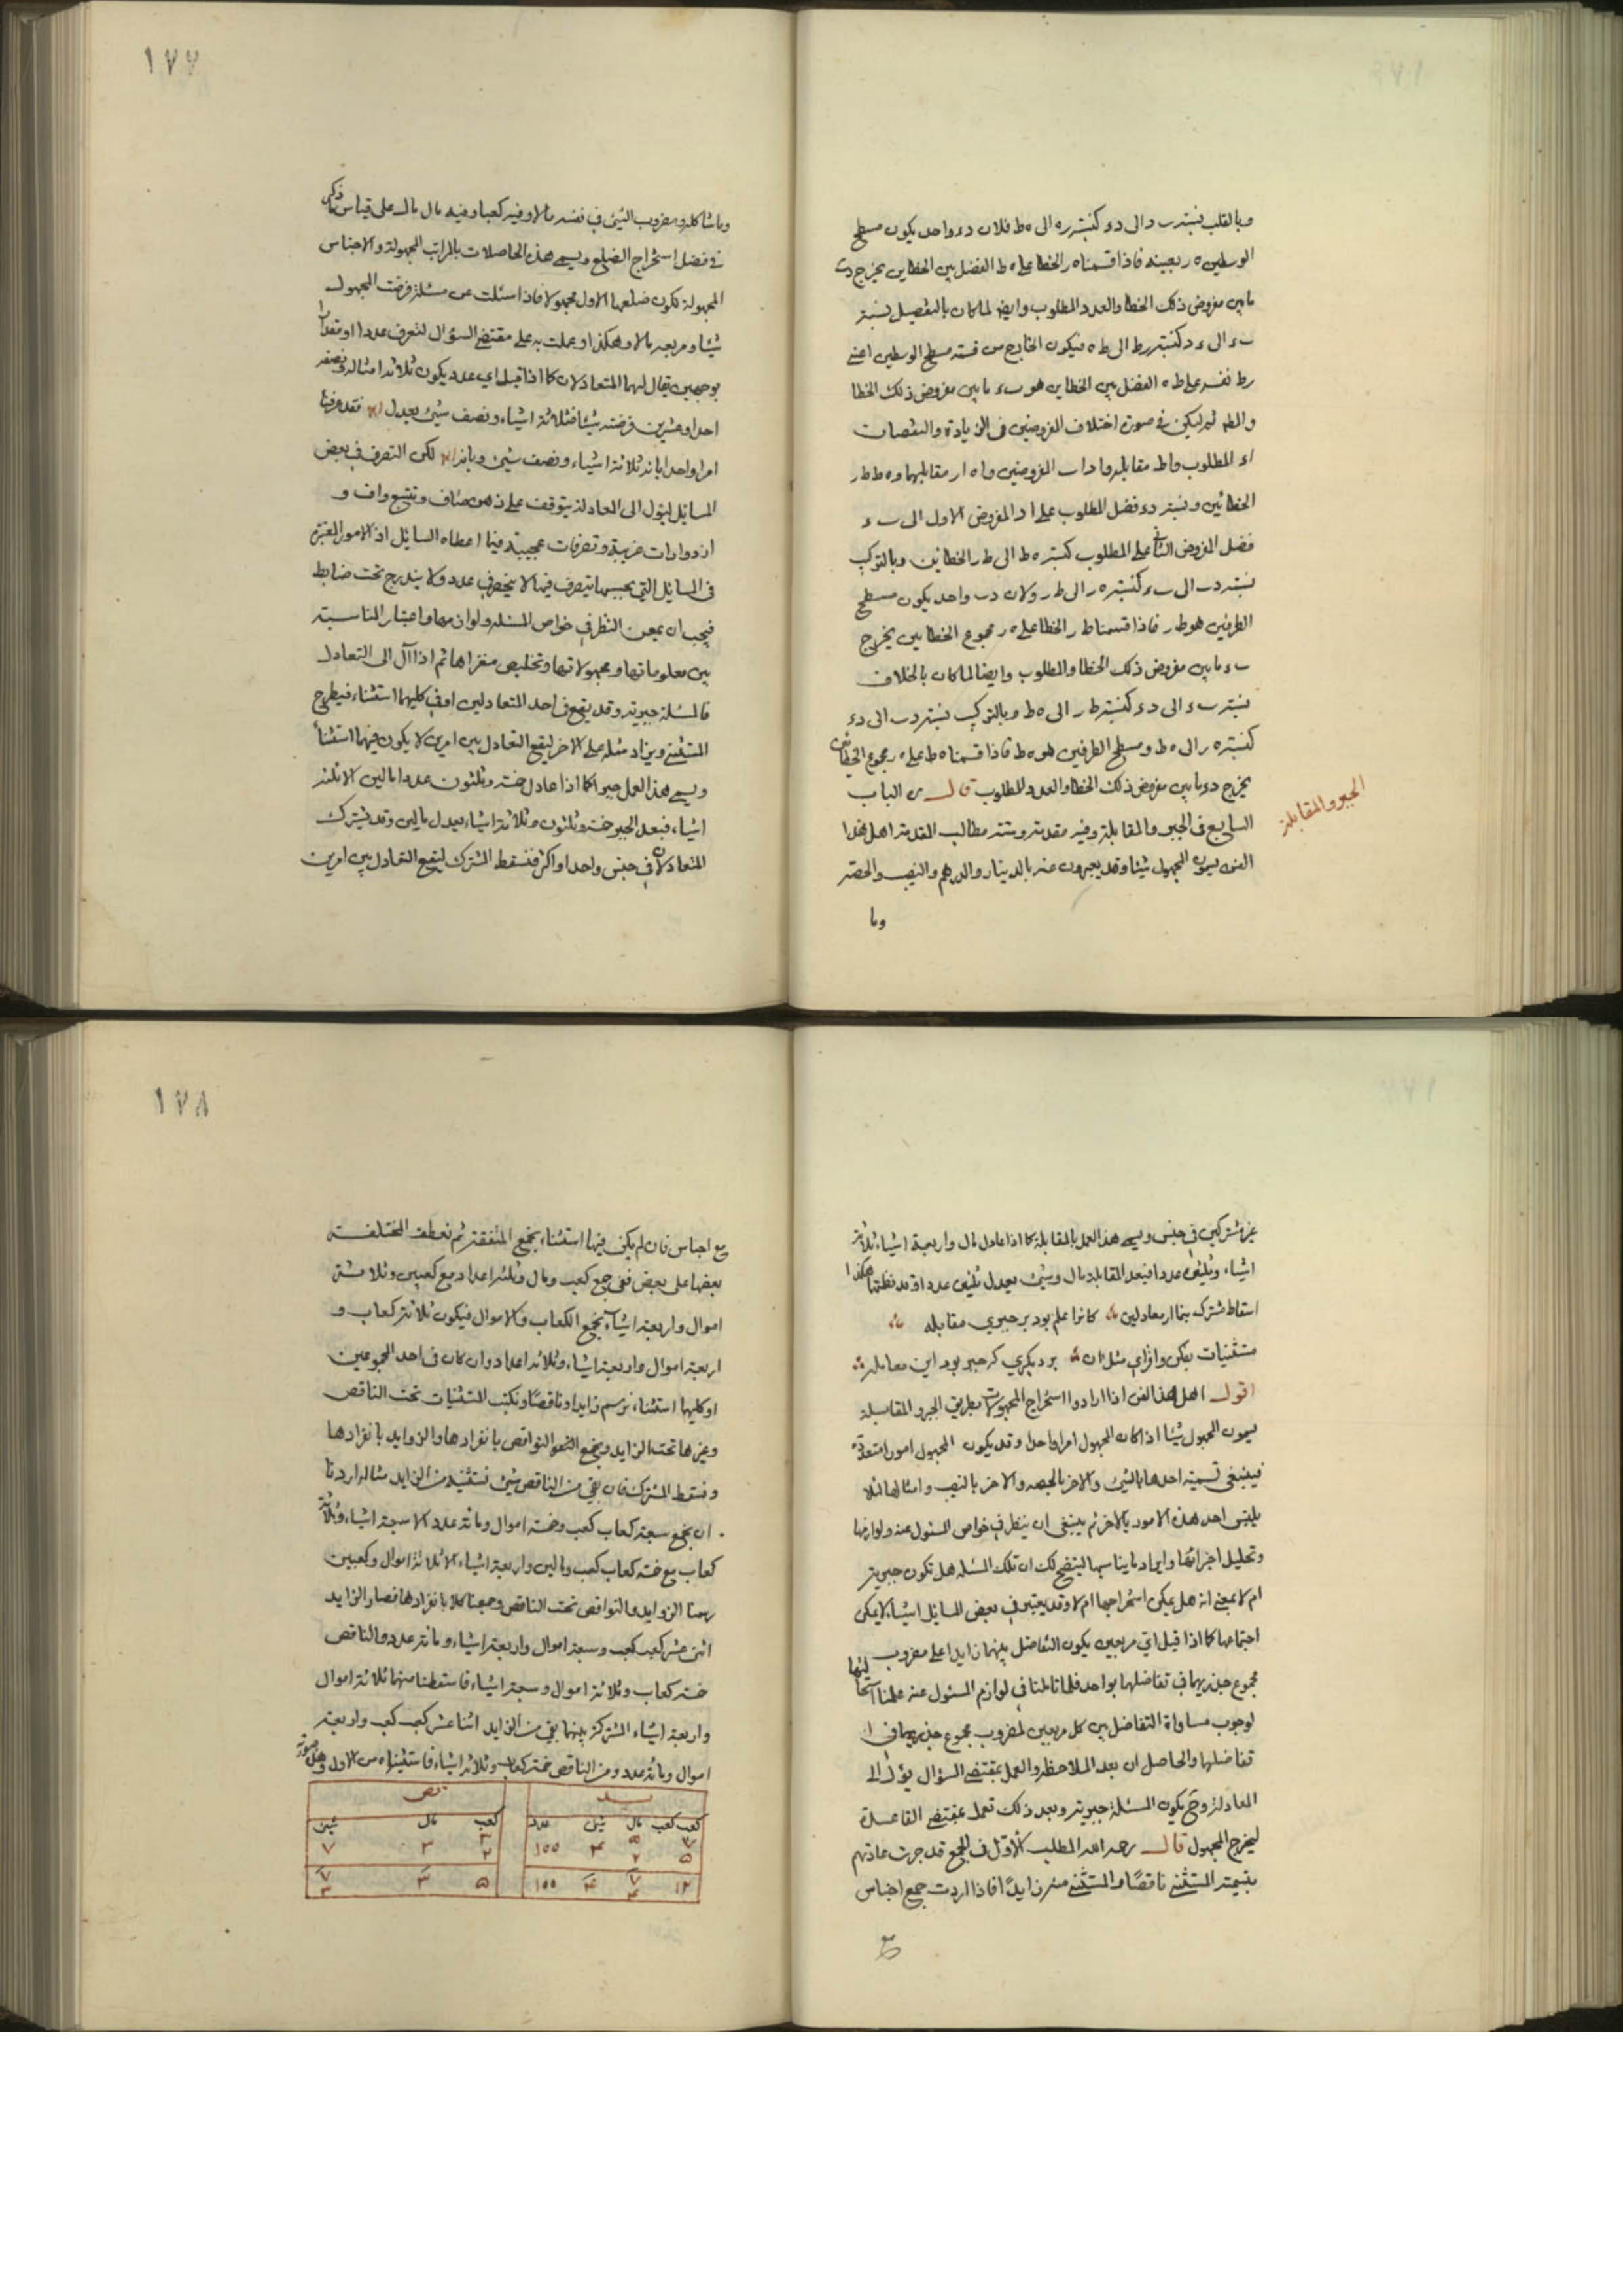 وبالقلب نسبة ب د الى د ء كنسبة ر ه الى ه ط فلان د ء واحد يكون مسطح
الوسطين ه ر بعينه فاذا قسمنا ه ر الخطا على ه ط الفضل بين الخطاين يخرج د ب
ما بين مفروض ذلك الخطا والعدد المطلوب وايضا لما كان بالتفصيل نسبة
ب ء الى ء د كنسبة ر ط الى ط ه فيكون الخارج من قسمة مسطح الوسطين اعنى
ر ط نفسه على ط ه الفضل بين الخطاين هو ب ء ما بين مفروض ذلك الخطا
والمط ثم ليكن فى صورة اختلاف المفروضين فى الزيادة والنقصان
ا ء المطلوب و ا ط مقابله و ا د ا ب المفروضين و ا ه ا ر مقابلهما و ه ط ط ر
الخطائين ونسبة د ء فضل المطلوب على ا د المفروض الاول الى ب ء
فضل المفروض الثانى على المطلوب كنسبة ه ط الى ط ر الخطائين وبالتركيب
نسبة د ب الى ب ء كنسبة ه ر الى ط ر ولان د ب واحد يكون مسطح
الطرفين هو ط ر فاذا قسمنا ط ر الخطا على ه ر مجموع الخطايين يخرج
ب ء ما بين مفروض ذلك الخطا والمطلوب وايضا لما كان بالخلاف
نسبة ب ء الى د ء كنسبة ط ر الى ه ط وبالتركيب نسبة د ب الى د ء
كنسبة ه ر الى ه ط ومسطح الطرفين هو ه ط فاذا قسمنا ه ط على ه ر مجموع الخطائين
يخرج د ء ما بين مفروض ذلك الخطا والعدد المطلوب قال ره الباب
السابع فى الجبر والمقابلة وفيه مقدمة وستة مطالب المقدمة اهل هذا
الفن يسمون المجهول شيئا وقد يعبرون عنه بالدينار والدرهم والنصيب والحصة
وما
الجبر والمقابلة
١٧٧
وما شاكله ومضروب الشئ فى نفسه مالا وفيه كعبا وفيه مال مال على قياس ما ذكر
فى فصل استخراج الضلع ويسمى هذه الحاصلات بالمراتب المجهولة والاجناس
المجهولة لكون ضلعها الاول مجهولا فاذا سئلت عن مسئلة فرضت المجهول
شيئا ومربعه مالا وهكذا وعملت به على مقتضى السؤال لتعرف عددا او مقدارا
بوجهين يقال لهما المتعادلان كما اذا قيل اى عدد يكون ثلاثة امثاله ونصفه
احدا وعشرين فرضته شيئا فثلاثة اشياء ونصف شئ يعدل ٢١ فقد عرفنا
امرا واحدا بانه ثلاثة اشياء ونصف شئ وبانه ٢١ لكن التصرف فى بعض
المسائل ليؤل الى المعادلة يتوقف على ذهن صاف وتتبع واف و
ازدواجات غريبة وتصرفات عجيبة فيما اعطاه السايل اذ الامور المعتبرة
فى المسايل التى بحسبها يتصرف فيها لا ينحصر فى عدد ولا يندرج تحت ضابط
فيجب ان يمعن النظر فى خواص المسئلة ولوازمها واعتبار المناسبة
بين معلوماتها ومجهولاتها وتخليص مغزاها ثم اذا آل الى التعادل
فالمسئلة جبرية وقد يقع فى احد المتعادلين او فى كليهما استثناء فيطرح
المستثنى ويزاد مثله على الاخر ليقع التعادل بين امرين لا يكون فيهما استثناء
ويسمى هذا العمل جبرا كما اذا عادل خمسة وثلثون عددا مالين الا ثلثة
اشياء فبعد الجبر خمسة وثلثون وثلاثة اشياء يعدل مالين وقد يشترك
المتعادلان فى جنس واحد او اكثر فنسقط المشترك ليقع التعادل بين امرين
غير مشتركين فى جنس ويسمى هذا العمل بالمقابلة كما اذا عادل مال واربعة اشياء ثلاثة
اشياء وثلثين عددا فبعد المقابلة مال وشئ يعدل ثلثين عددا وقد نظمتها هكذا
اسقاط مشترك بنما از معادلين كانرا علم بود بر جبرى مقابله
مستثنيات بفكن وافزاى مثل آن بر ديكرى كه جبر بود اين معامله
اقول اهل هذا الفن اذا ارادوا استخراج المجهولات بطريق الجبر والمقابلة
يسمون المجهول شيئا اذا كان المجهول امرا واحدا وقد يكون المجهول امورا متعددة
فينبغى تسمية احدها بالشئ والاخر بالحصة والاخر بالنصيب وامثالها لئلا
يلتبس احد هذه الامور بالاخر ثم ينبغى ان ينظر فى خواص المسئول عنه ولوازمها
وتحليل اجزائها وايراد ما يناسبها ليتضح لك ان تلك المسئلة هل تكون جبرية
ام لا بمعنى انه هل يمكن استخراجها ام لا وقد يعتبر فى بعض المسائل اشياء لا يمكن
اجتماعها كما اذا قيل اى مربعين يكون التفاضل بينهما زايدا على مضروب
مجموع جذريهما فى تفاضلهما بواحد فلما تاملنا فى لوازم المسئول عنه علمنا استحالتها
لوجوب مساواة التفاضل بين كل مربعين لمضروب مجموع جذريهما فى
تفاضلهما والحاصل ان بعد الملاحظة والعمل بمقتضى السؤال يؤل الى
المعادلة وح يكون المسئلة جبرية وبعد ذلك تعمل بمقتضى القاعدة
ليخرج المجهول قال رحمه الله المطلب الاول فى الجمع قد جرت عادتهم
بتسمية المستثنى ناقصا والمستثنى منه زايدا فاذا اردت جمع اجناس
مع
١٧٨
مع اجناس فان لم يكن فيها استثناء يجمع المتفقة ثم نعطف المختلفة
بعضها على بعض ففى جمع كعب ومال وثلثة اعداد مع كعبين وثلاثة
اموال واربعة اشياء يجمع الكعاب والاموال فيكون ثلاثة كعاب و
اربعة اموال واربعة اشياء وثلاثة اعداد وان كان فى احد المجموعين
او كليهما استثناء نرسم زايدا وناقصا ونكتب المستثنيات تحت الناقص
وغيرها تحت الزايد ويجمع النواقص بانفرادها والزوايد بانفرادها
ونسقط المشترك فان بقى من الناقص شئ نستثنيه من الزايد مثاله اردنا
ان نجمع سبعة كعاب كعب وخمسة اموال ومائة عدد الا سبعة اشياء وثلاثة
كعاب مع خمسة كعاب كعب ومالين واربعة اشياء الا ثلاثة اموال وكعبين
رسمنا الزوايد والنواقص تحت الناقص وجمعنا كلا بانفرادها فصار الزايد
اثنى عشر كعب كعب وسبعة اموال واربعة اشياء ومائة عدد والناقص
خمسة كعاب وثلاثة اموال وسبعة اشياء فاسقطنا منها ثلاثة اموال
واربعة اشياء المشتركة بينهما بقى من الزايد اثنا عشر كعب كعب واربعة
اموال ومائة عدد ومن الناقص خمسة كعاب وثلاثة اشياء فاستثنيناه من الاول وهذه صورته
كعب كعب مال شئ عدد
كعب مال شئ